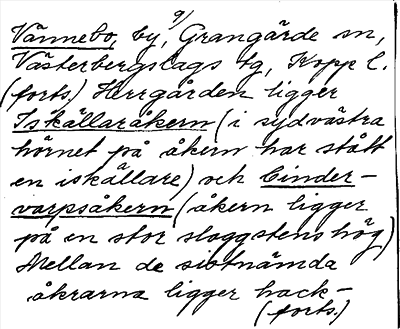 9/
Vännebo, by, Grangärde sn,
Västerbergslags tg, Kopp l.
(forts.) Herrgården ligger
Iskällaråkern (i sydvästra
hörnet på åkern har stått
en iskällare) och Cinder-
varpsåkern (åkern ligger
på en stor slaggstenshög)
Mellan de sistnämda
åkrarna ligger hack-
(forts.)